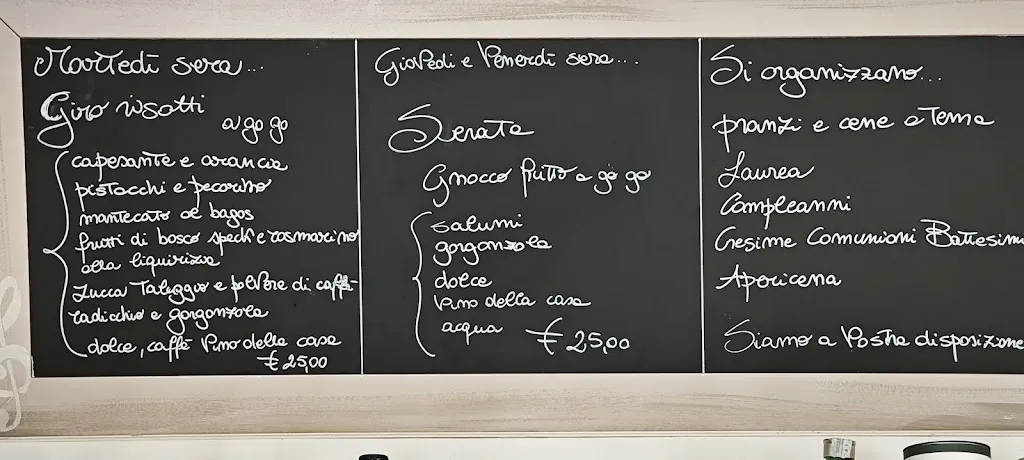 Martedì sera...
Giro risotti
a go go
capesante e arancia
pistacchi e pecorino
mantecato al bagos
frutti di bosco speck e rosmarino
alla liquirizia
Zucca Taleggio e polvere di caffè
radicchio e gorgonzola
dolce, caffè Vino della casa
€ 25,00
Giovedì e Venerdì sera...
Serata
Gnocco fritto a go go
salumi
gorgonzola
dolce
Vino della casa
acqua € 25,00
Si organizzano...
pranzi e cene a Tema
Laurea
Compleanni
Cresime Comunioni Battesimi
Apericena
Siamo a Vostra disposizione